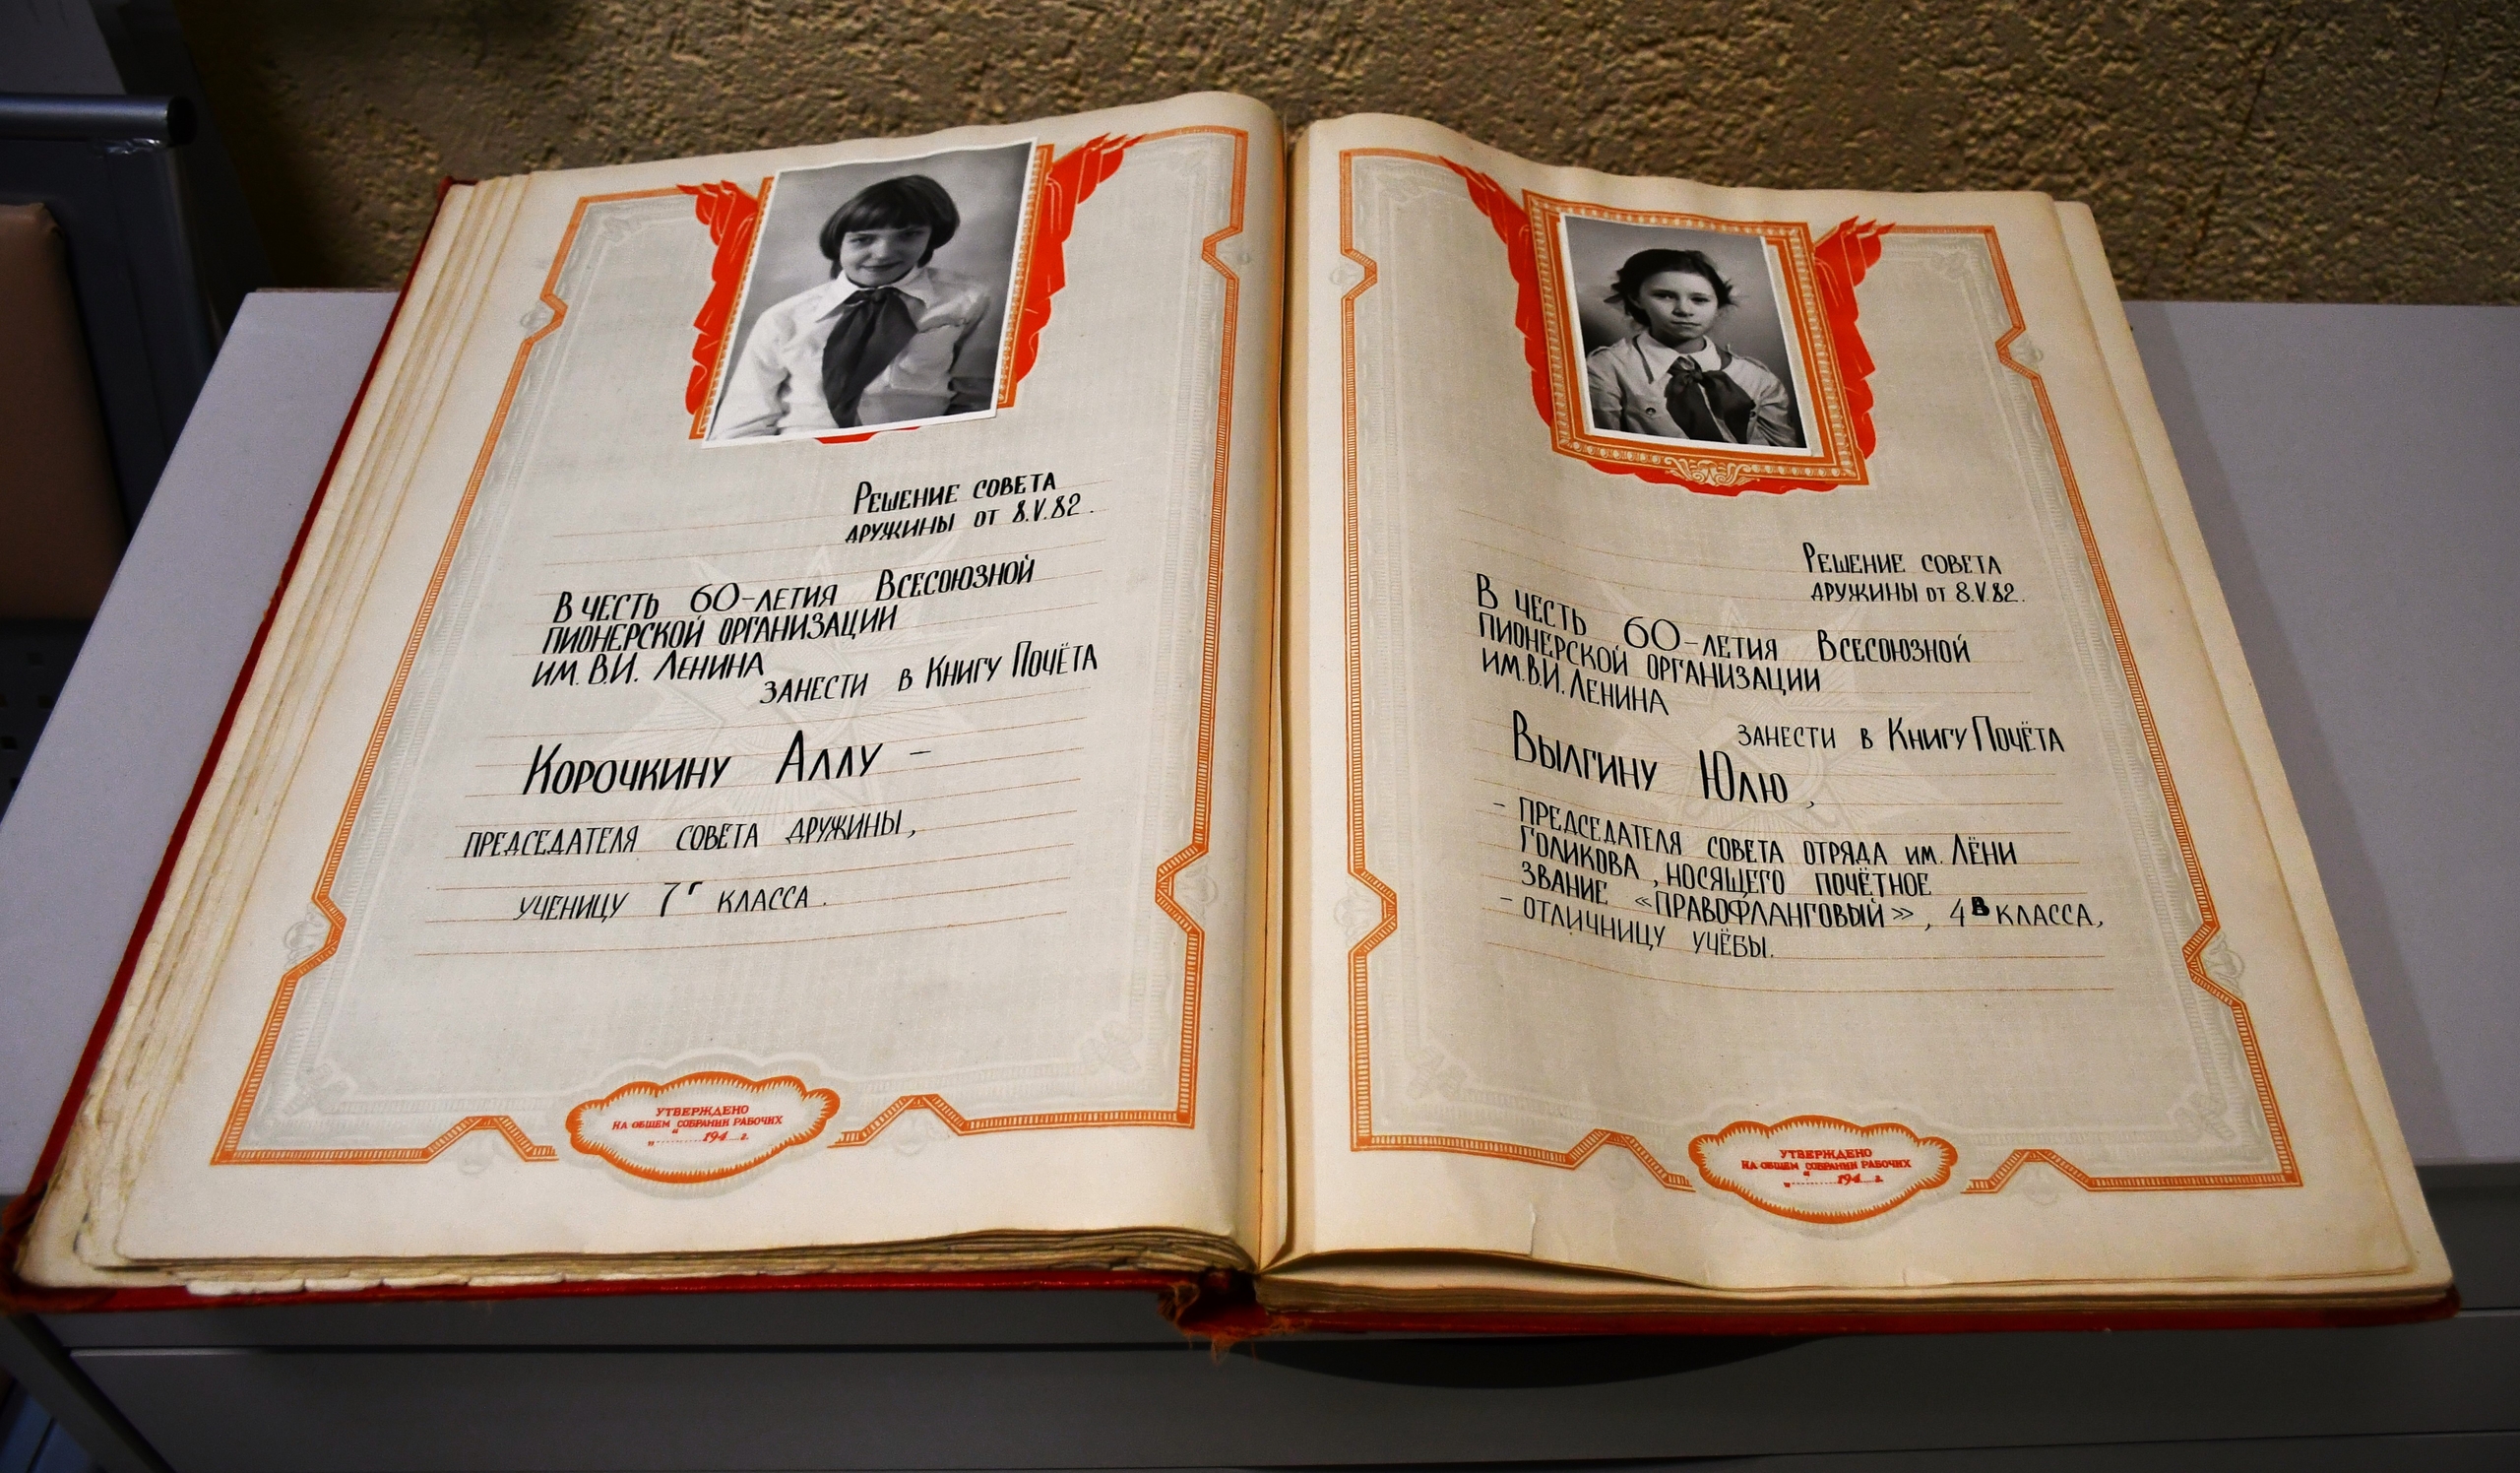 Решение совета
дружины от 8.V.82.
В честь 60-летия Всесоюзной
пионерской организации
им. В.И. Ленина
занести в Книгу Почёта
Корочкину Аллу –
председателя совета дружины,
ученицу 7г класса.
УТВЕРЖДЕНО
НА ОБЩЕМ СОБРАНИИ РАБОЧИХ
„ “ 194 г.
Решение совета
дружины от 8.V.82.
В честь 60-летия Всесоюзной
пионерской организации
им. В.И. Ленина
занести в Книгу Почёта
Вылгину Юлю,
– председателя совета отряда им. Лёни
Голикова, носящего почётное
звание «правофланговый», 4В класса,
– отличницу учёбы.
УТВЕРЖДЕНО
НА ОБЩЕМ СОБРАНИИ РАБОЧИХ
„ “ 194 г.